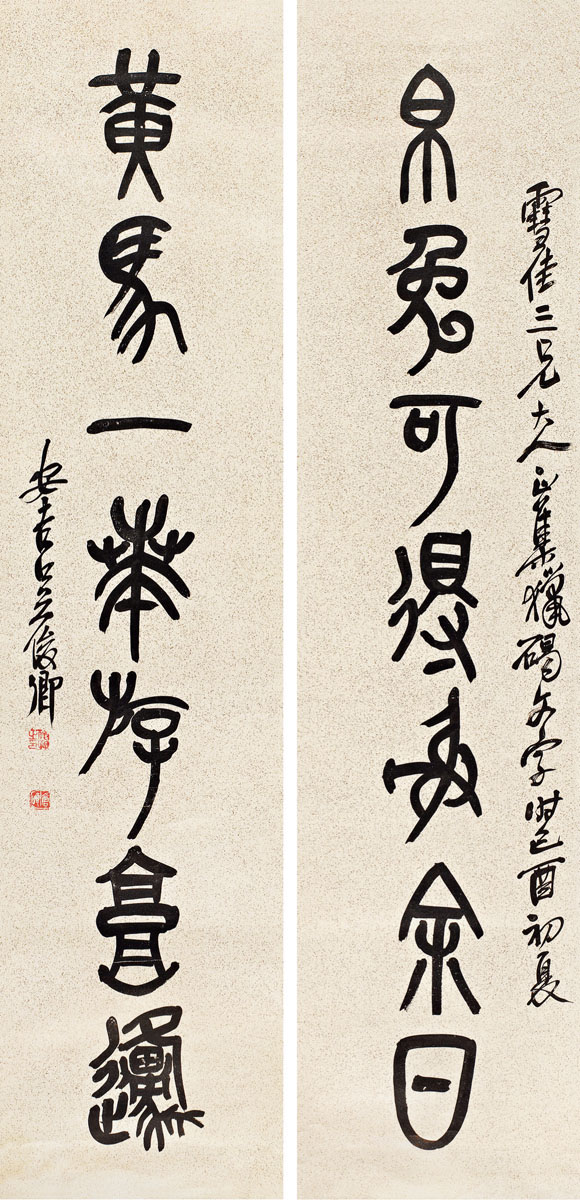 帛兔可得射余日
雪佳三兄大人正集獵碣文字時己酉初夏
黃馬一華存高邍
安吉吳俊卿